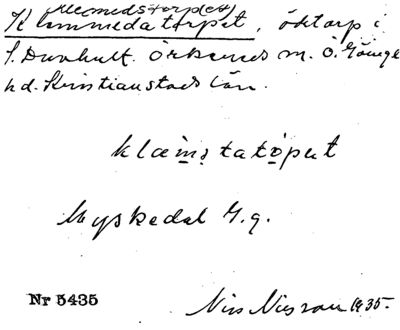 Klemmedstorpet
Klemmedatorpet, ödetorp i
S. Duvhult. Örkeneds sn. Ö. Göinge
hd. Kristianstads län.
klæmstatopet
Myskedal
Nr 5435
Nils Nilsson 1935.